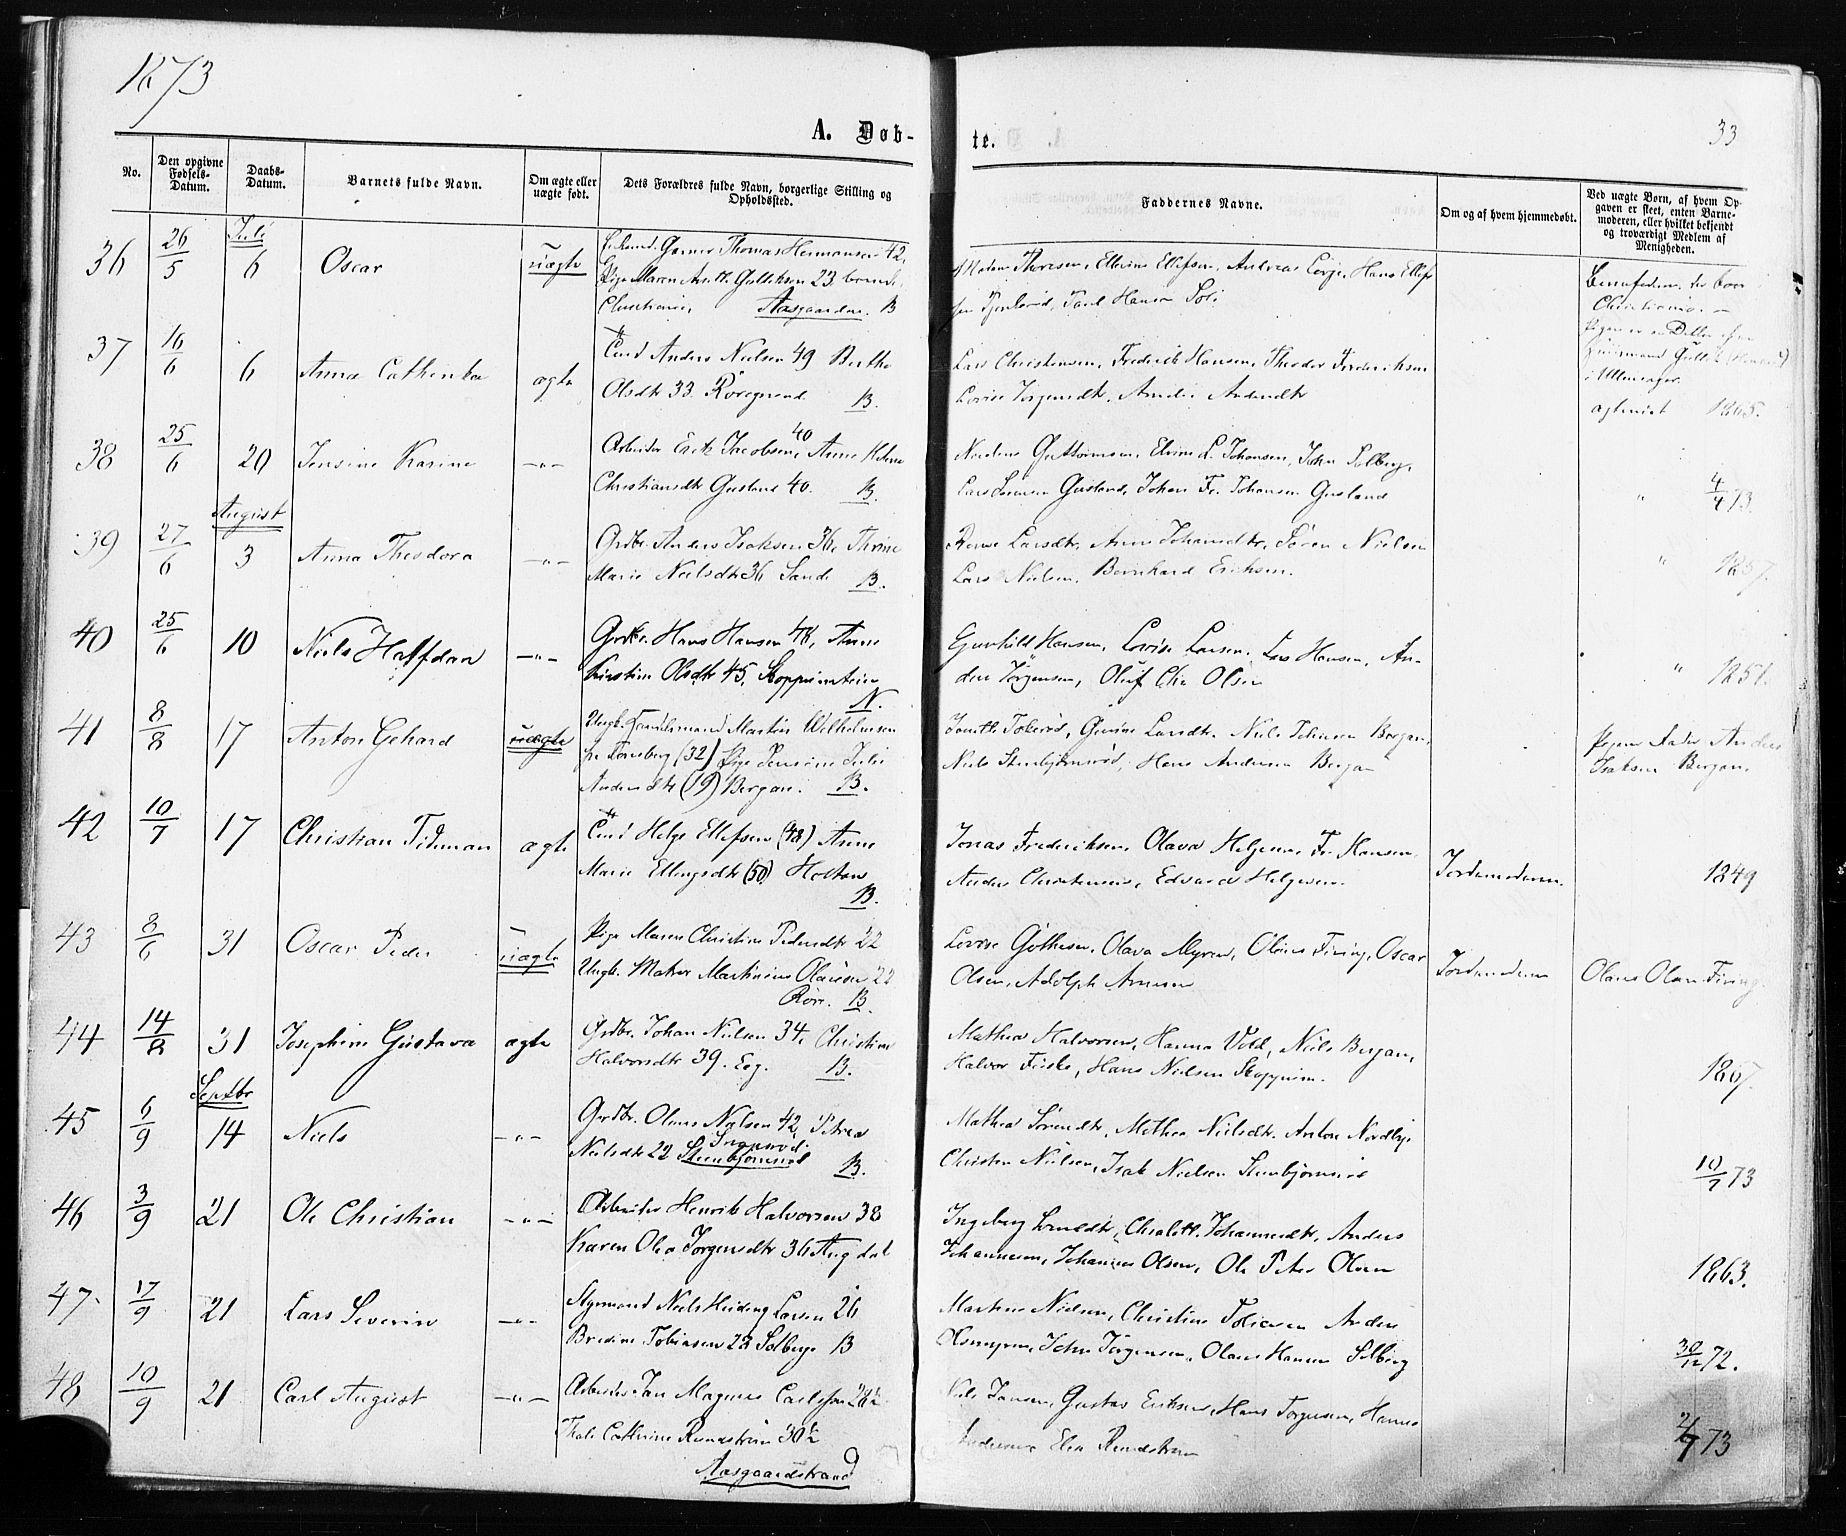 1873
33
A. Døb-
te.
No.
Den opgivne Fødsels-Datum.
Daabs-Datum.
Barnets fulde Navn.
Om ægte eller uægte født.
Dets Forældres fulde Navn, borgerlige Stilling og Opholdssted.
Faddernes Navne.
Om og af hvem hjemmedøbt.
Ved uægte Børn, af hvem Opgaven er skeet, enten Barnemoderen, eller hvilket bekjendt og troværdigt Medlem af Menigheden.
Juli
36 26/5 6 Oscar uægte
Thomas Hermansen 42,
Pige Maren 23
Christiania, Aasgaarden. B
Thoresen, Ellevine Ellefsen, Andreas Hans Ellef
sen Paul Hansen
Christiania
37 16/6 6 Anna Cathinka ægte
Anders Nielsen 49 Berthe
Olsdtr 33. B.
Lars Christensen, Frederik Hansen, Theodor Frederiksen
Lovise Jørgensdtr, Andersdtr
1865.
38 25/6 20 Jensine Karine -"-
Arbeider Erik Jacobsen 40, Anne Helene
Christiansdtr Gusland 40. B.
Guttormsen, Elvine L. Johansen, John Solberg,
Lars Gusland, Johan Fr. Johansen Gusland
" 4/4 73.
August
39 27/6 3 Anna Theodora -"-
Grdbr. Anders Isaksen 36, Thrine
Marie Nielsdtr 36 Sande B.
Larsdtr, Anne Johansdtr, Søren Nielsen
Lars Nielsen, Bernhard Eriksen.
" 1857.
40 25/6 10 Niels Halfdan -"-
Grdbr. Hans Hansen 48, Anne
Kirstine Olsdtr 45, N.
Gunhild Hansen, Lovise Larsen, Lars Hansen, An-
ders Jørgensen, Oluf Chr Olsen
" 1851.
41 8/8 17 Anton Gehard uægte
Ungk. Handelsmand Martin Wilhelmsen
fra Tønsberg (32) Pige Jensine Julie
Andersdtr (19) Bergan. B.
Larsdtr. Niels Johansen Bergan,
Niels Stenbjørnrød, Hans Andersen Bergan
Pigens Fader Anders
Isaksen Bergan.
42 10/7 17 Christian Tidman ægte
Helge Ellefsen (48) Anne
Marie Ellingsdtr (50) Holtan
B.
Jonas Frederiksen, Olava Helgesen, Fr. Hansen,
Anders Christensen, Edvard Helgesen.
Jordemoderen.
1849
43 8/6 31 Oscar Peder uægte
Pige Maren Christine Pedersdtr 22
Ungk. Matros Martinius Olausen 22
Rørr. B.
Lovise Gøthesen, Olava Myren, Olaus Firing, Oscar
Olsen, Adolph Arnesen
Jordemoderen
Olaus Olsen Firing.
44 14/8 31 Josephine Gustava ægte
Grdbr. Johan Nielsen 34, Christine
Halvorsdtr 39. Eeg. B.
Mathea Halvorsen, Hanna Vold, Niels Bergan,
Halvor Fiske, Hans Nielsen Skoppum.
1867.
Septbr
45 6/9 14 Niels -"-
Grdbr. Olaus Nilsen 42, Petrea
Nielsdtr 22 Stenbjørnrød B.
Mathea Sørensdtr, Mathea Nielsdtr. Anton Nordby,
Christen Nielsen, Isak Nielsen Stenbjørnrød
10/7 73
46 3/9 21 Ole Christian -"-
Arbeider Henrik Halvorsen 38
Karen Olea Jørgensdtr 36 Augdal
Ingeborg Charlotte Johannesdtr, Anders
Johannesen, Johannes Olsen, Ole Peter Olsen
1863.
47 17/9 21 Lars Severin -"-
Styrmand Niels Larsen 26
Bredine Tobiasen 22 Solberg B
Martine Nielsen, Christine Tobiasen Anders
John Jørgensen, Olaus Hansen Solberg
30/12 72.
48 10/9 21 Carl August -"-
Arbeider Jan Magnus Carlsson 28½
Thale Cathrine Rundstrøm 30½
Aasgaardstrand
Nils Jansen, Gustav Eriksen, Hans Torgersen, Hanne
Andersen Elen Rundstrøm
2/7 73